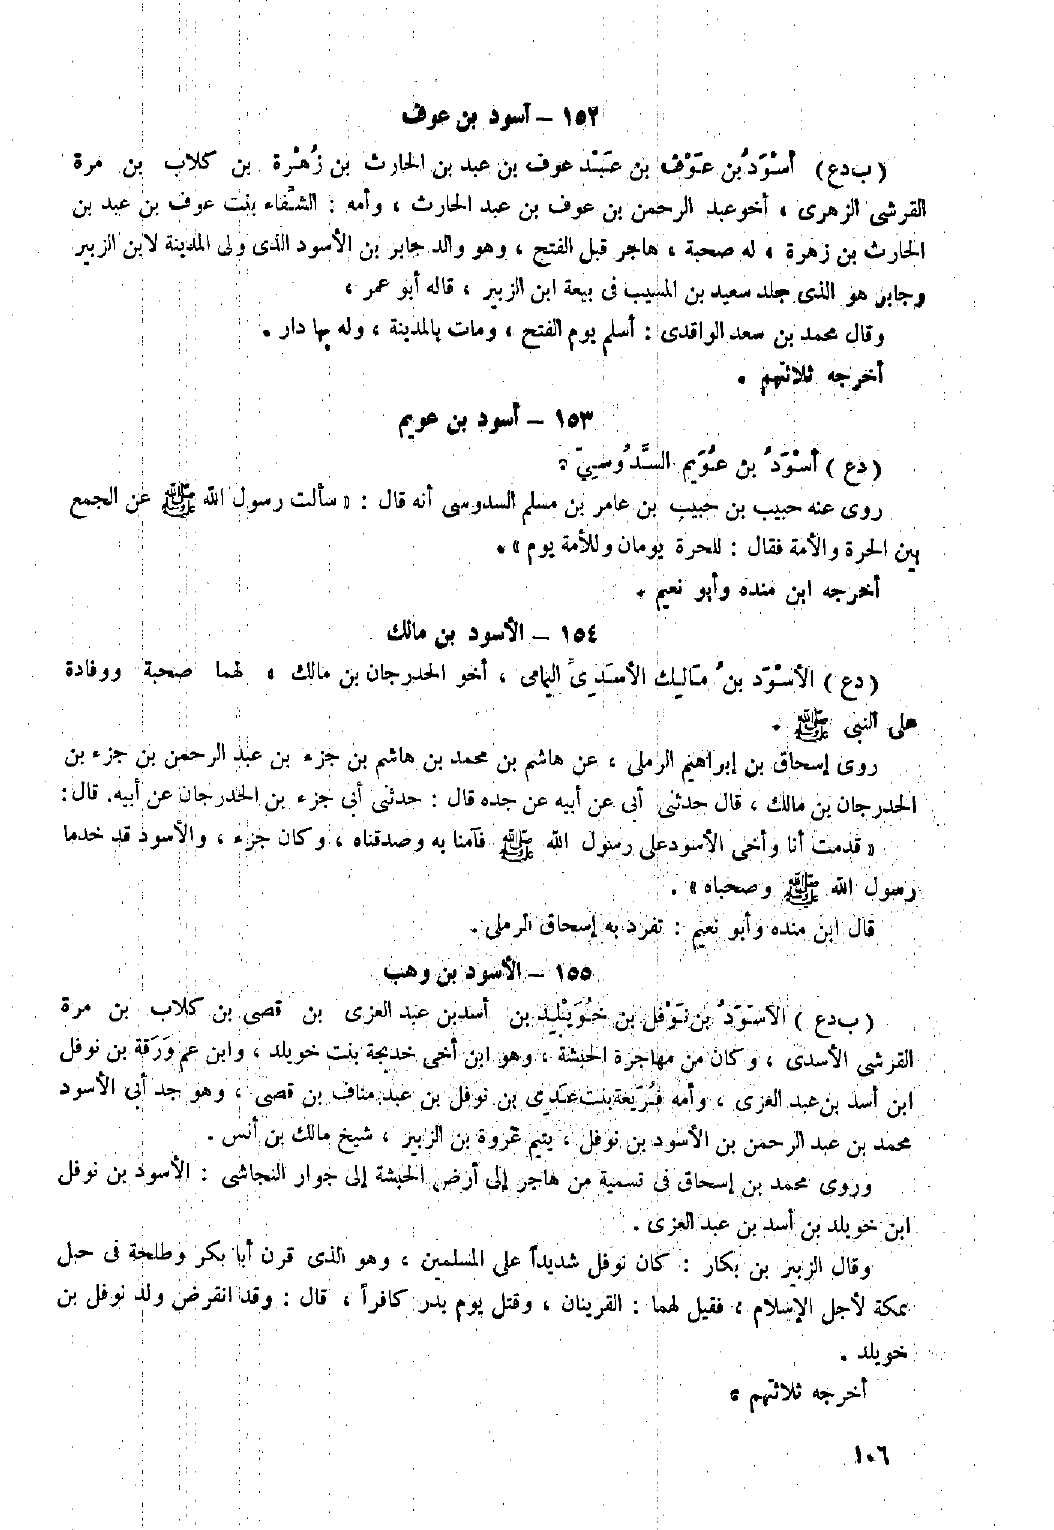 ١٥٢ – أسود بن عوف
( ب د ع ) أَسْوَدُ بن عَوْف بن عَبْد عوف بن عبد بن الحارث بن زُهْرة بن كلاب بن مرة
القرشى الزهرى ، أخو عبد الرحمن بن عوف بن عبد الحارث ، وأمه : الشِّفاء بنت عوف بن عبد بن
الحارث بن زهرة ، له صحبة ، هاجر قبل الفتح ، وهو والد جابر بن الأسود الذى ولى المدينة لابن الزبير
وجابر هو الذى جلد سعيد بن المسيب فى بيعة ابن الزبير ، قاله أبو عمر ،
وقال محمد بن سعد الواقدى : أسلم يوم الفتح ، ومات بالمدينة ، وله بها دار .
أخرجه ثلاثتهم .
١٥٣ – أسود بن عويم
( د ع ) أَسْوَدُ بن عُوَيم السَّدُوسِىّ .
روى عنه حبيب بن حبيب بن عامر بن مسلم السدوسى أنه قال : « سألت رسول الله ﷺ عن الجمع
بين الحرة والأمة فقال : للحرة يومان وللأمة يوم » .
أخرجه ابن منده وأبو نعيم .
١٥٤ – الأسود بن مالك
( د ع ) الأسْوَد بنُ مَالِك الأسَدِىّ اليمامى ، أخو الحدرجان بن مالك ، لهما صحبة ووفادة
على النبى ﷺ .
روى إسحاق بن إبراهيم الرملى ، عن هاشم بن محمد بن هاشم بن جزء بن عبد الرحمن بن جزء بن
الحدرجان بن مالك ، قال حدثنى أبى عن أبيه عن جده قال : حدثنى أبى جزء بن الحدرجان عن أبيه. قال :
« قدمت أنا وأخى الأسود على رسول الله ﷺ فآمنا به وصدقناه ، وكان جزء ، والأسود قد خدما
رسول الله ﷺ وصحباه » .
قال ابن منده وأبو نعيم : تفرد به إسحاق الرملى .
١٥٥ – الأسود بن وهب
( ب د ع ) الأسْوَدُ بن نَوْفَل بن خُوَيْلِد بن أسد بن عبد العزى بن قصى بن كلاب بن مرة
القرشى الأسدى ، وكان من مهاجرة الحبشة ، وهو ابن أخى خديجة بنت خويلد ، وابن عم وَرَقة بن نوفل
ابن أسد بن عبد العزى ، وأمه فُرَيعة بنت عَدِى بن نوفل بن عبد مناف بن قصى ، وهو جد أبى الأسود
محمد بن عبد الرحمن بن الأسود بن نوفل ، يتيم عروة بن الزبير ، شيخ مالك بن أنس .
وروى محمد بن إسحاق فى تسمية من هاجر إلى أرض الحبشة إلى جوار النجاشى : الأسود بن نوفل
ابن خويلد بن أسد بن عبد العزى .
وقال الزبير بن بكار : كان نوفل شديداً على المسلمين ، وهو الذى قرن أبا بكر وطلحة فى حبل
بمكة لأجل الإسلام ، فقيل لهما : القرينان ، وقتل يوم بدر كافراً ، قال : وقد انقرض ولد نوفل بن
خويلد .
أخرجه ثلاثتهم .
١٠٦